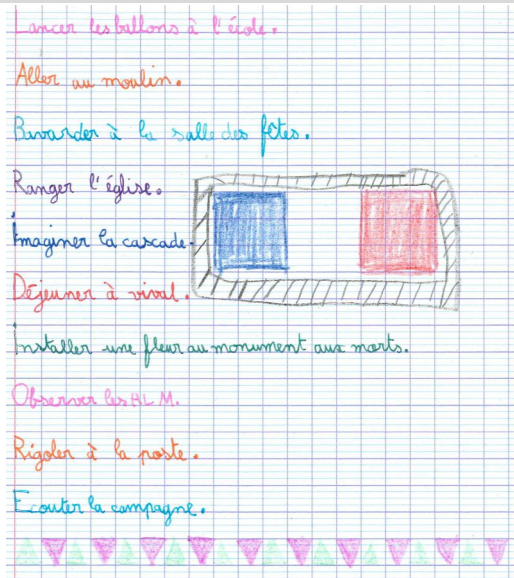 Lancer les ballons à l'école.
Aller au moulin.
Bavarder à la salle des fêtes.
Ranger l'église.
Imaginer la cascade.
Déjeuner à vival.
Installer une fleur au monument aux morts.
Observer les H L M.
Rigoler à la poste.
Ecouter la campagne.